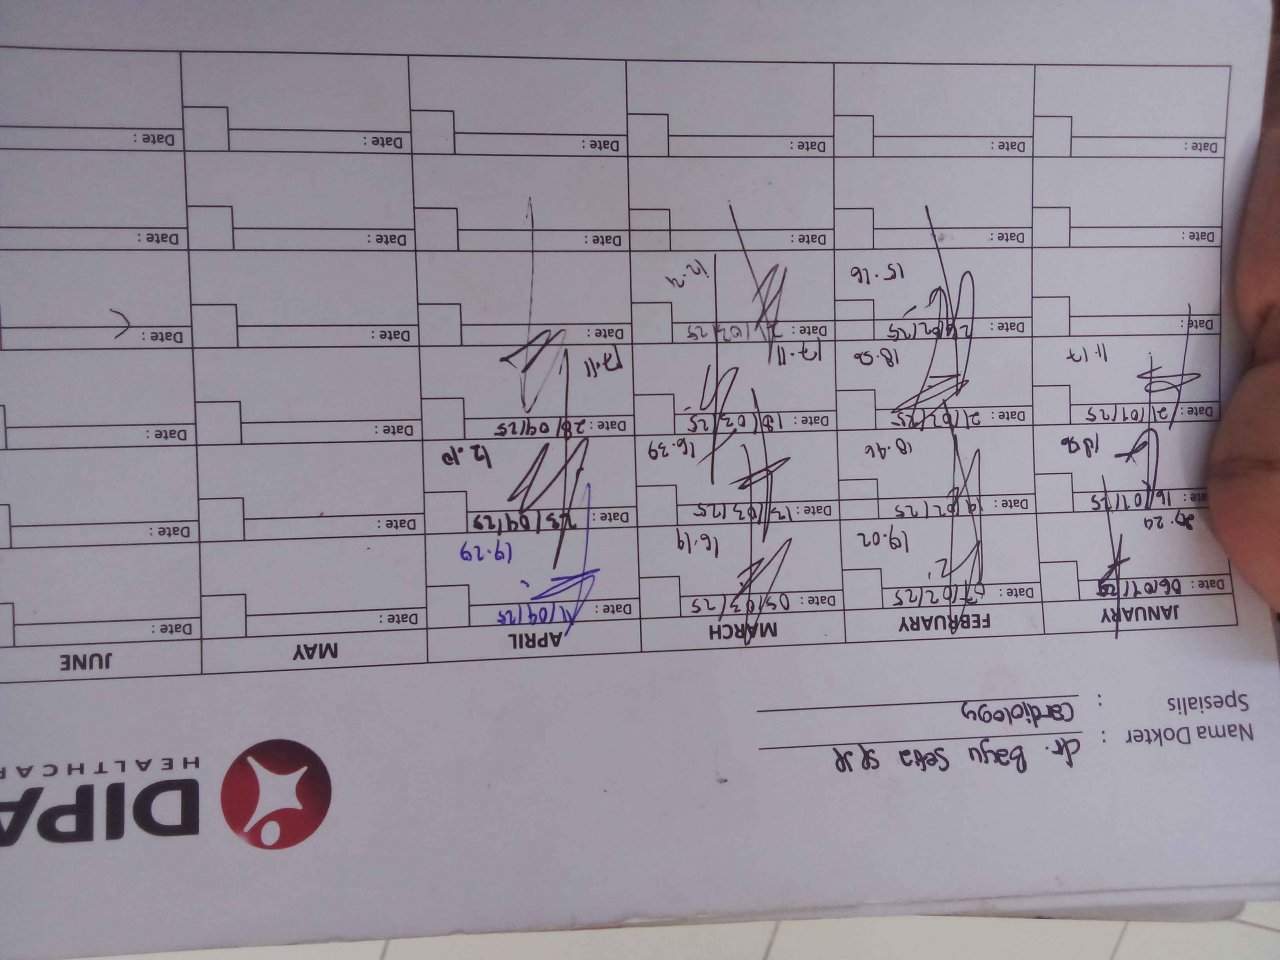 DIPA
HEALTHCAR
Nama Dokter : dr. Bagu Seta SpJP
Spesialis : Cardiology
JANUARY FEBRUARY MARCH APRIL MAY JUNE
Date : 06/01/25 Date : 07/02/25 Date : 05/03/25 Date : 11/04/25 Date : Date :
19.02 16.19 19.29
Date : 16/01/25 Date : 14/02/25 Date : 13/03/25 Date : 23/04/25 Date : Date :
18.56 18.46 16.39 12.10
Date : 21/01/25 Date : 21/02/25 Date : 18/03/25 Date : 28/04/25 Date :
11.17 18.56 17.11 17.11
Date : Date : Date : Date : Date : Date :
15.16
Date : Date : Date : Date : Date : Date :
Date : Date : Date : Date : Date : Date :